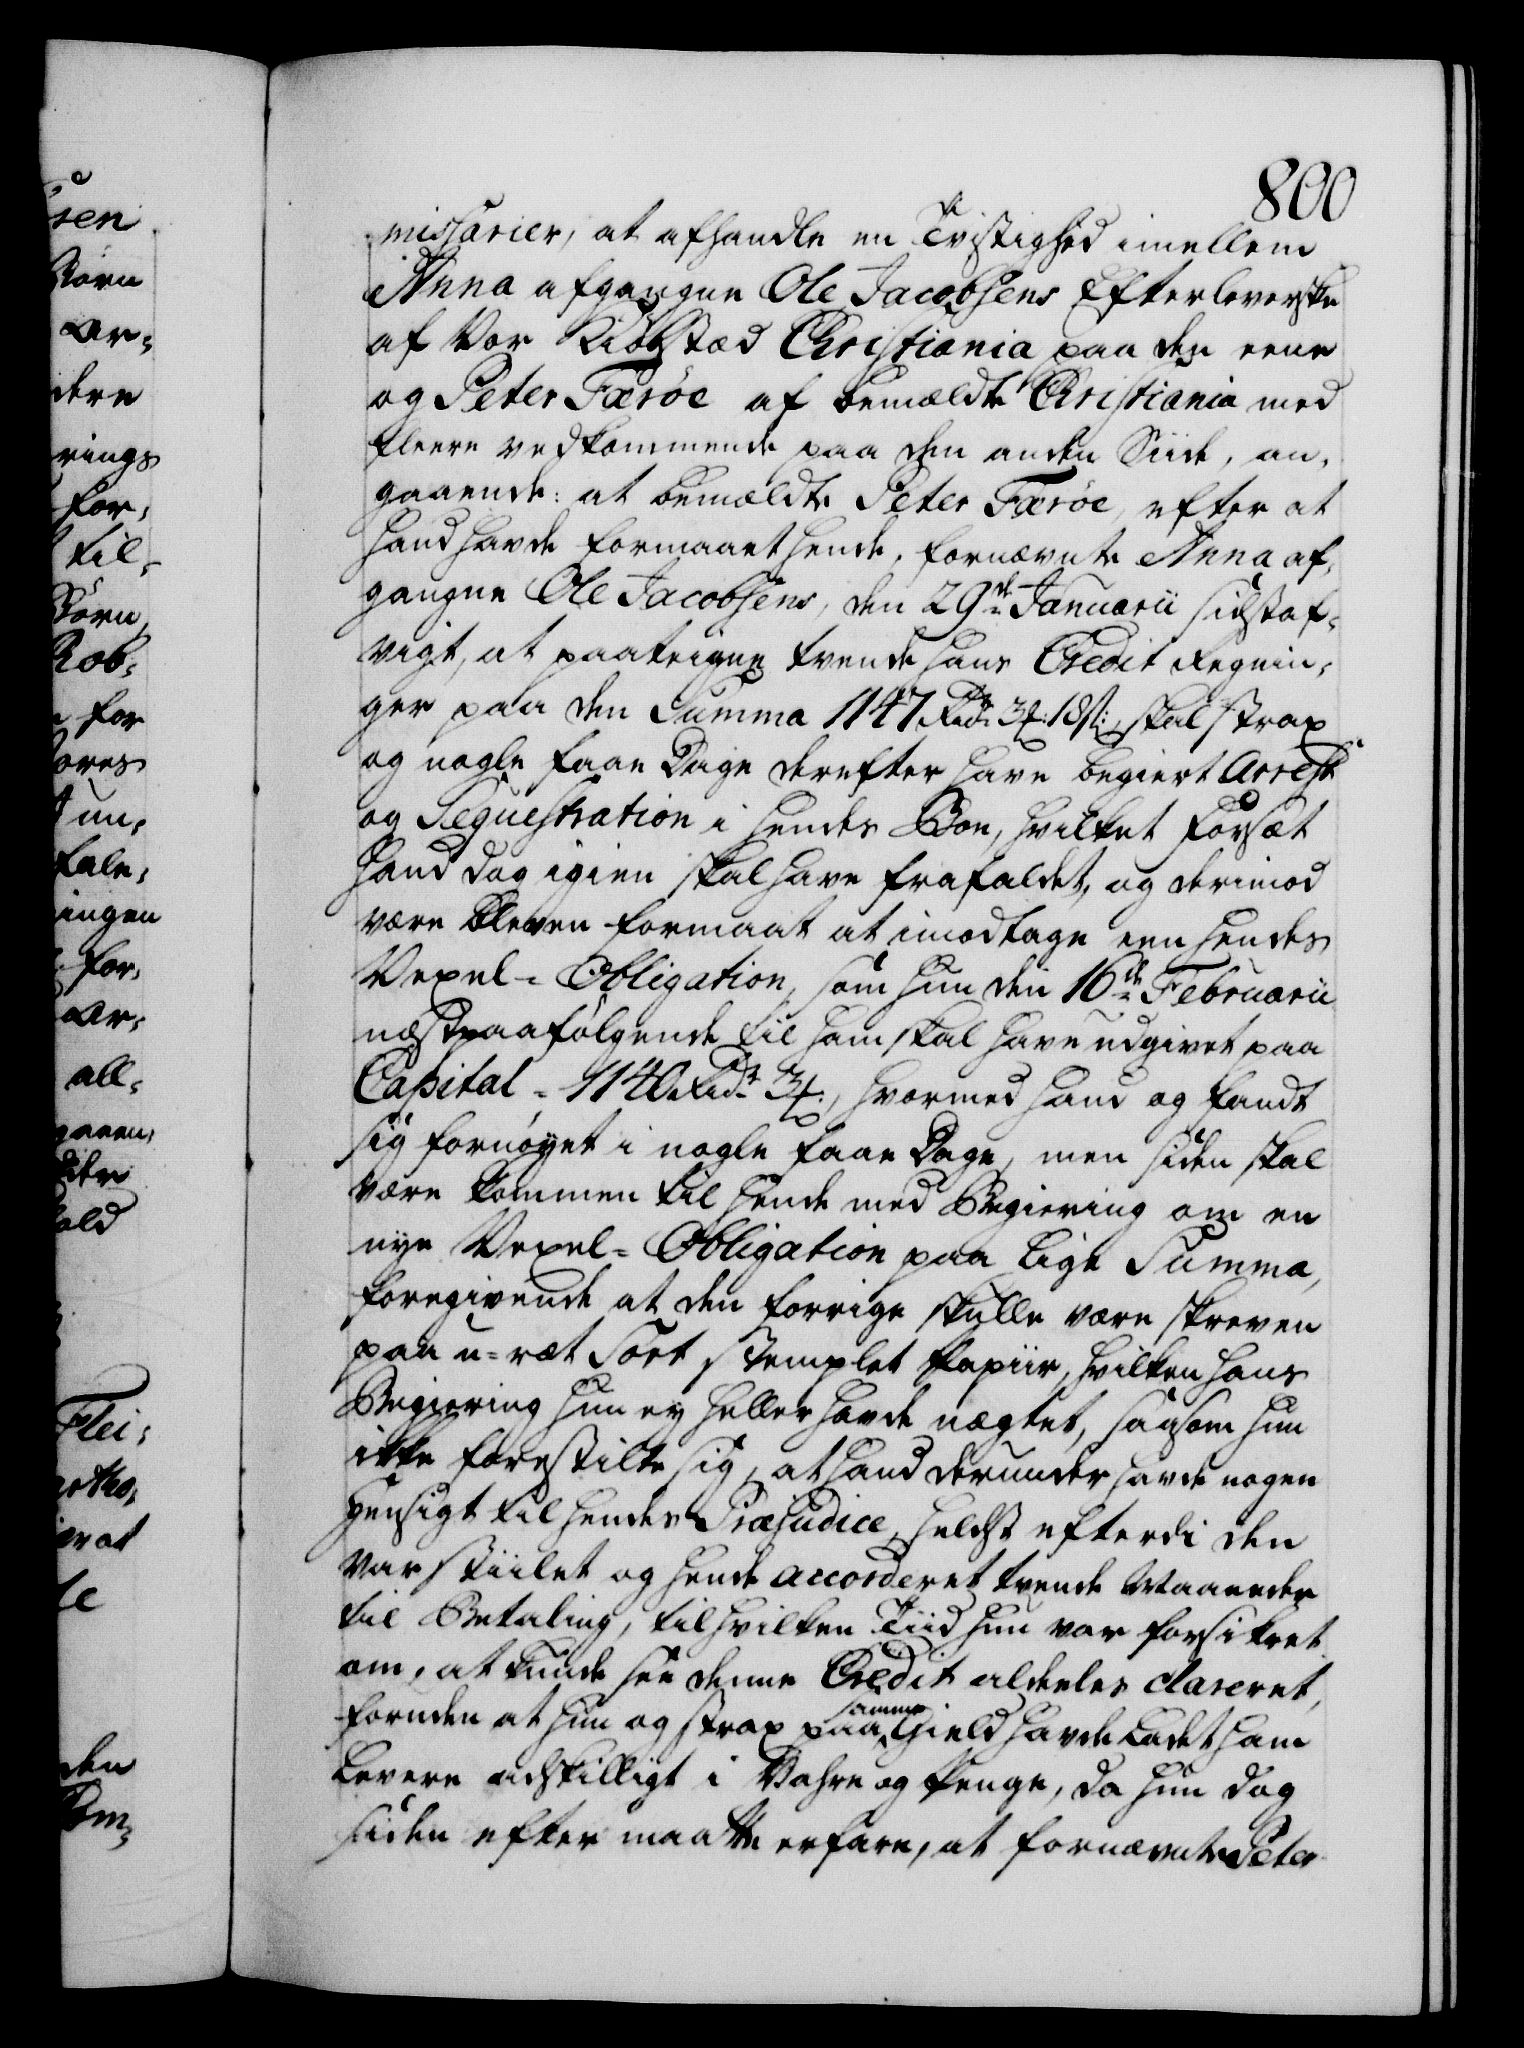 800
missarier, at afhandle en Tvistighed imellem
Anna afgangne Ole Jacobsens Efterleverske
af Vor Kiøbstæd Christiania paa den eene
og Peter Færöe af bemældte Christiania med
fleere vedkommende paa den anden Siide, an-
gaaende: at bemældte Peter Færöe, efter at
hand havde formaaet hende, fornævnte Anna af-
gangne Ole Jacobsens, den 29de Januarii sidstaf-
vigt, at paateigne tvende hans Credit Regnin-
ger paa den Summa 1147 Rdr 3 # 18 s:, skal strax
og nogle faae Dage derefter have begiert Arrest
og Seqvestration i hendes Boe, hvilket Forsæt
hand dog igien skal have frafaldet, og derimod
være bleven formaat at imodtage een hendes
Vexel-Obligation, som hun den 16de Februarii
næstpaafølgende til ham skal have udgivet paa
Capital - 1140 Rdr 3 #:, hvormed hand og fandt
sig fornøyet i nogle faae Dage, men siden skal
være kommen til hende med Begiering om en
nye Vexel-Obligation paa lige Summa,
foregivende at den forrige skulle være skreven
paa u-ræt Sort stemplet Papiir, hvilken hans
Begiering hun ey heller havde nægtet, saasom hun
ikke forestilte sig, at hand derunder havde nogen
Hensigt til hendes Præjudice, heldst efterdi den
var stiilet og hende accorderet tvende Maaneder
til Betaling, til hvilken Tiid hun var forsikret
om, at kunde see denne Credit aldeeles clareret,
foruden at hun og strax paa samme Gield havde ladet ham
levere adskilligt i Vahre og Penge, da hun dog
siden efter maatte erfare, at fornævnte Peter